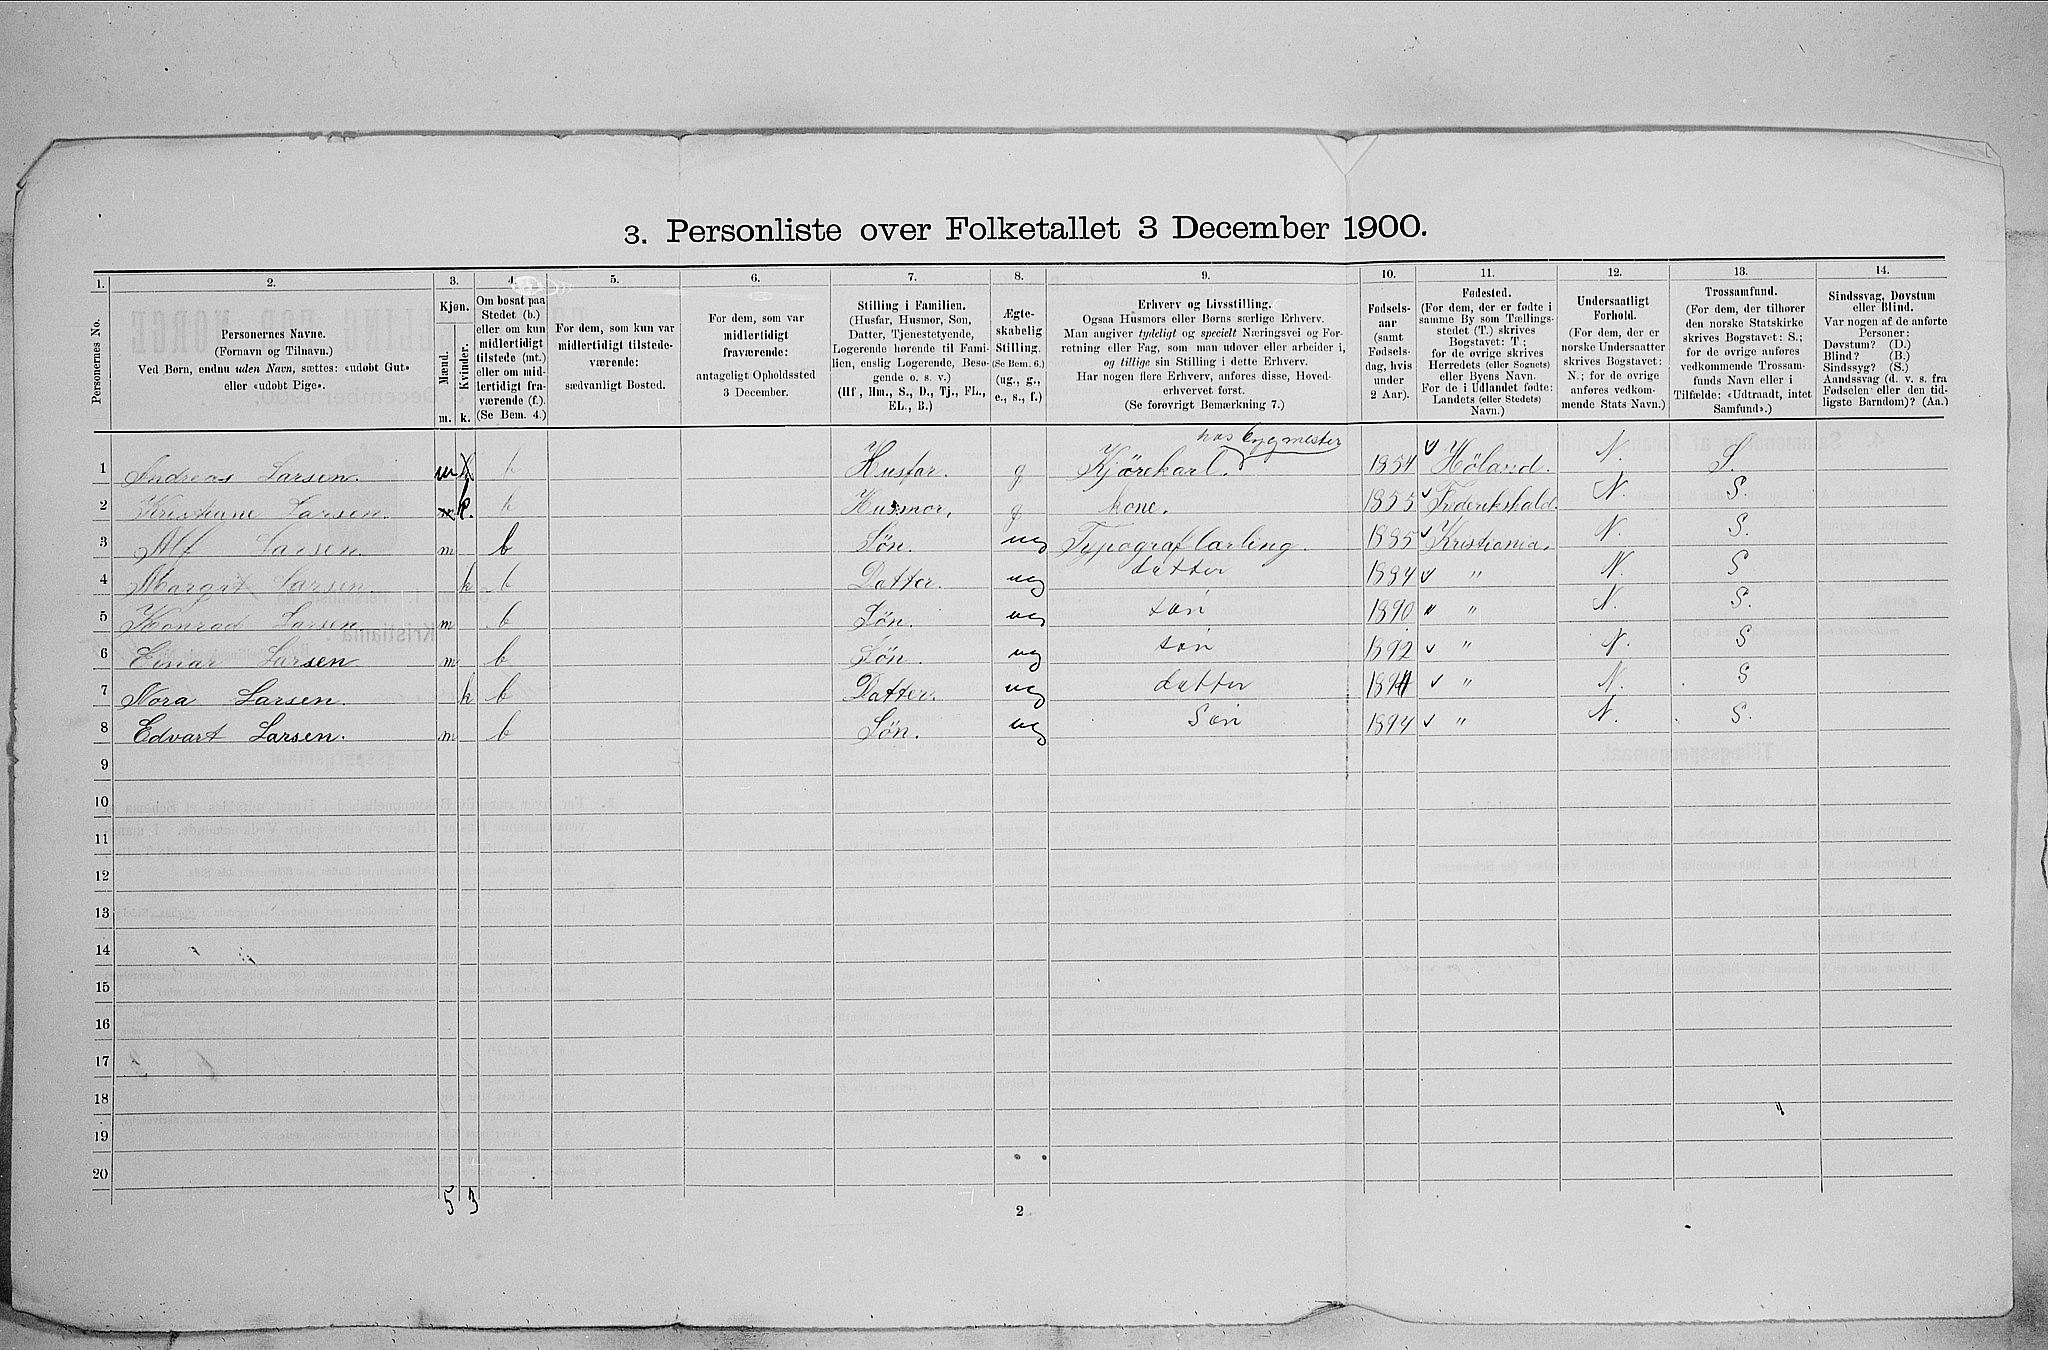 3. Personliste over Folketallet 3 December 1900.
1. 2. 3. 4. 5. 6. 7. 8. 9. 10. 11. 12. 13. 14.
Personernes No.
Personernes Navne.
(Fornavn og Tilnavn.)
Ved Børn, endnu uden Navn, sættes: «udøbt Gut»
eller «udøbt Pige».
Kjøn.
Mænd.
Kvinder.
m. k.
Om bosat paa
Stedet (b.)
eller om kun
midlertidigt
tilstede (mt.)
eller om mid-
lertidigt fra-
værende (f.).
(Se Bem. 4.)
For dem, som kun var
midlertidigt tilstede-
værende:
sædvanligt Bosted.
For dem, som var
midlertidigt
fraværende:
antageligt Opholdssted
3 December.
Stilling i Familien.
(Husfar, Husmor, Søn,
Datter, Tjenestetyende,
Logerende hørende til Fami-
lien, enslig Logerende, Besø-
gende o. s. v.)
(Hf., Hm., S., D., Tj., FL.,
EL., B.)
Ægte-
skabelig
Stilling.
(Se Bem. 6.)
(ug., g.,
e., s., f.)
Erhverv og Livsstilling.
Ogsaa Husmors eller Børns særlige Erhverv.
Man angiver tydeligt og specielt Næringsvei og For-
retning eller Fag, som man udover eller arbeider i,
og tillige sin Stilling i dette Erhverv.
Har nogen flere Erhverv, anføres disse, Hoved-
erhvervet først.
(Se forøvrigt Bemærkning 7.)
Fødsels-
aar
(samt
Fødsels-
dag, hvis
under
2 Aar).
Fødested.
(For dem, der er fødte i
samme By som Tællings-
stedet (T.) skrives
Bogstavet: T ;
for de øvrige skrives
Herredets (eller Sognets)
eller Byens Navn.
For de i Udlandet fødte:
Landets (eller Stedets)
Navn.)
Undersaatligt
Forhold.
(For dem, der er
norske Undersaatter
skrives Bogstavet:
N.; for de øvrige
anføres vedkom-
mende Stats Navn.)
Trossamfund.
(For dem, der tilhører
den norske Statskirke
skrives Bogstavet: S.;
for de øvrige anføres
vedkommende Trossam-
funds Navn eller i
Tilfælde: «Udtraadt, intet
Samfund».)
Sindssvag, Døvstum
eller Blind.
Var nogen af de anførte
Personer:
Døvstum? (D.)
Blind? (B.)
Sindssyg? (S.)
Aandssvag (d. v. s. fra
Fødselen eller den tid-
ligste Barndom)? (Aa.)
hos bygmester
1 Andreas Larsen. m b Husfar. g Kjørekarl. 1854 Høland. N. S.
2 Kristiane Larsen. k. b Husmor, g kone. 1855 Frederikshald. N. S.
3 Alf Larsen. m b Søn. ug Typograf lærling. 1885 Kristiania. N. S.
4 Margit Larsen. k b Datter. ug datter 1884 " N. S
5 Konrad Larsen. m b Søn. ug søn 1890 " " N. S.
6 Einar Larsen m b Søn. ug søn 1892 " N. S
7 Nora Larsen. k b Datter. ug datter " N. S
8 Edvart Larsen. m b Søn. ug Søn 1894 " N. S.
9
10
11
12
13
14
15
16
17
18
19
20
5 3
2